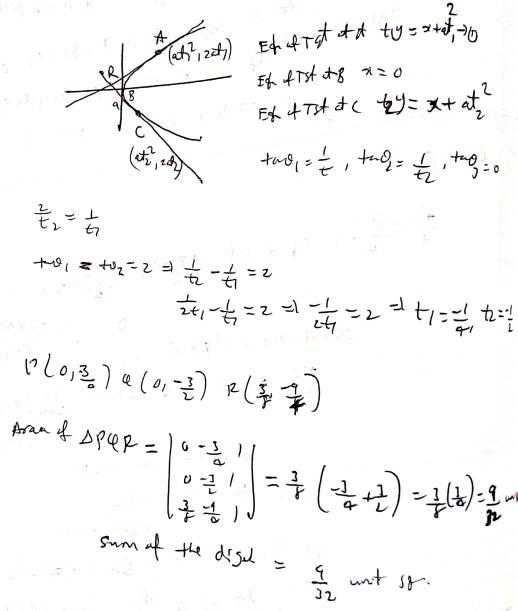 A
(at₁², 2at₁)
R
B
Q
C
(at₂², 2at₂)
Eqn of Tgt at A t₁y = x + at₁² → ①
Eqn of Tgt at B x = 0
Eqn of Tgt at C t₂y = x + at₂²
tanθ₁ = 1/t, tanθ₂ = 1/t₂, tanθ₃ = 0
2/t₂ = 1/t₁
tanθ₁ = tanθ₂ = 2 ⇒ 1/t₂ - 1/t₁ = 2
1/2t₁ - 1/t₁ = 2 ⇒ -1/2t₁ = 2 ⇒ t₁ = -1/4, t₂ = -1/2
P(0, 3/4) Q(0, -3/2) R(3/8, -9/4)
Area of ΔPQR = | 0 -3/4 1 |
| 0 -3/2 1 |
| 3/8 -9/4 1 | = 3/8 (-3/4 + 3/2) = 3/8 (3/4) = 9/32
Sum of the = 9/32 unit sq.